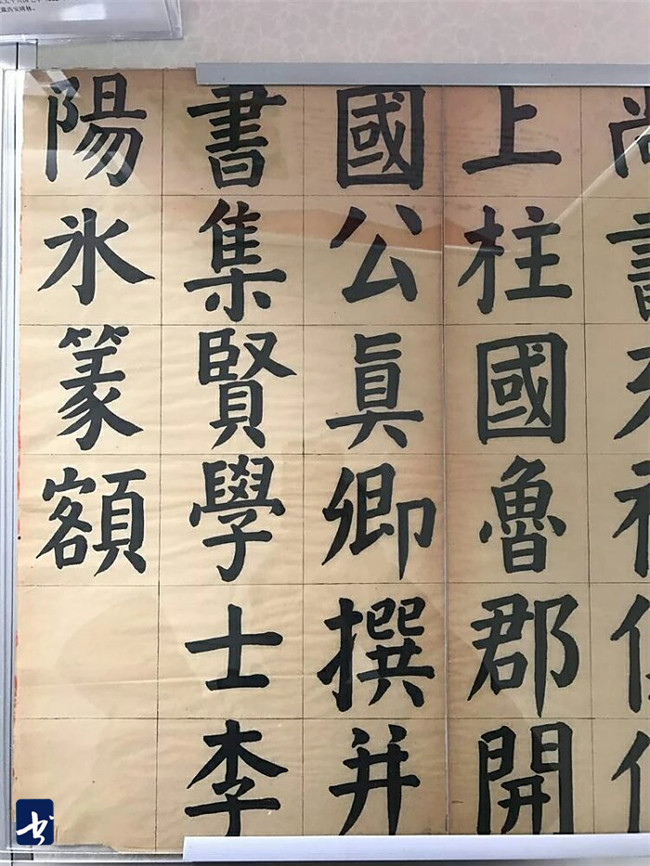 上柱國魯郡開
國公眞卿撰并
書集賢學士李
陽氷篆額